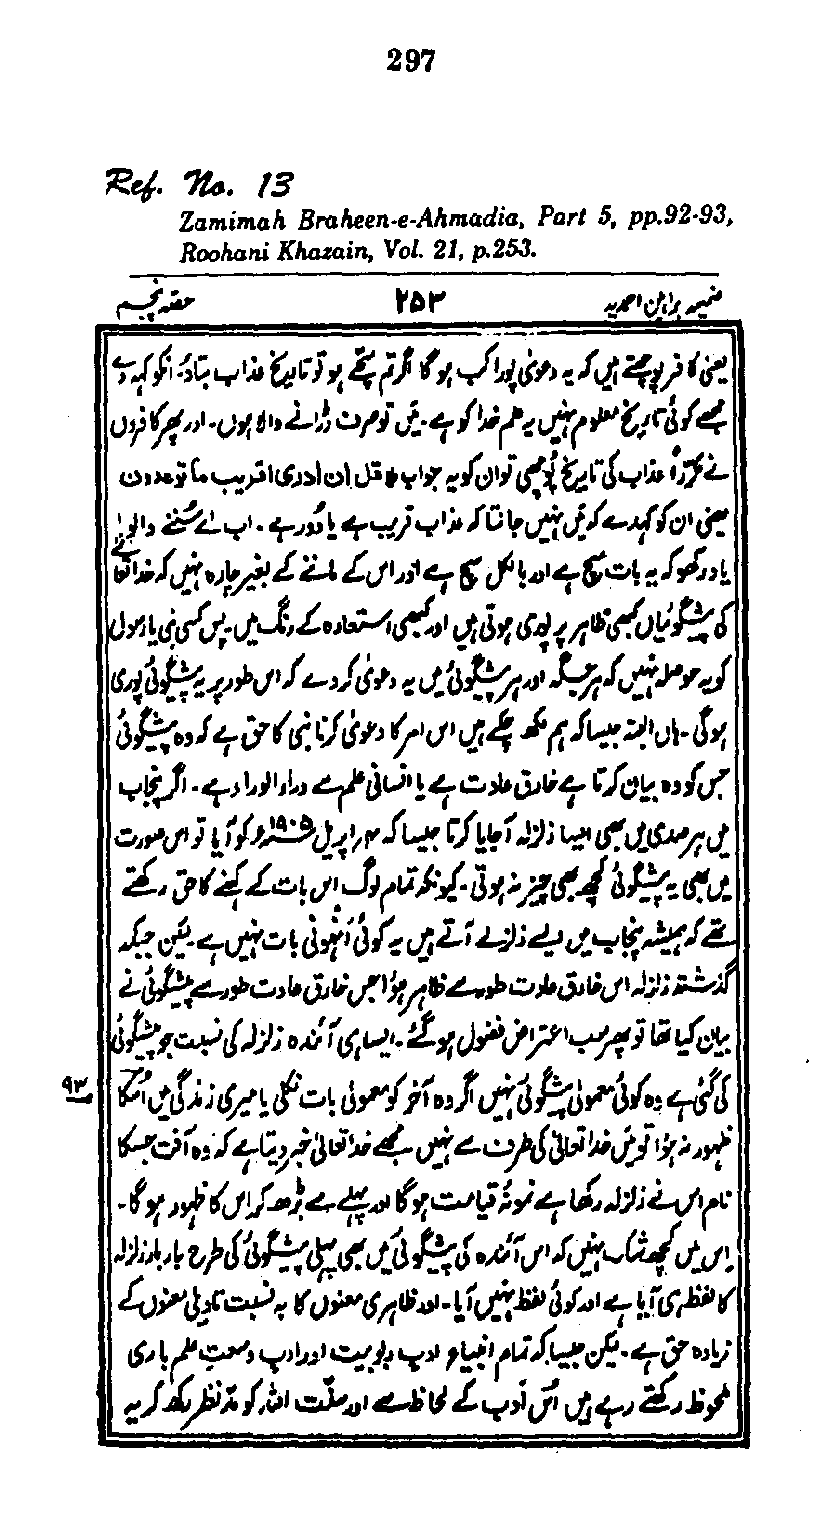 297
Ref. No. 13
Zamimah Braheen-e-Ahmadia, Part 5, pp.92-93,
Roohani Khazain, Vol. 21, p.253.
ضمیمہ براہین احمدیہ ۲۵۳ حصہ پنجم
یعنی کافر پوچھتے ہیں کہ یہ دعویٰ پورا کب ہوگا اگر تم سچے ہو تو تاریخ عذاب بتاؤ۔ انکو کہہ دے
مجھے کوئی تاریخ معلوم نہیں یہ علم خدا کو ہے۔ میں تو صرف ڈرانے والا ہوں۔ اور پھر کافروں
نے مکرّر عذاب کی تاریخ پوچھی تو ان کو یہ جواب ملا قل ان ادری اقریب ما توعدون
یعنی ان کو کہدے کہ میں نہیں جانتا کہ عذاب قریب ہے یا دُور ہے۔ اب اے سُننے والو!
یاد رکھو کہ یہ بات سچ ہے اور بالکل سچ ہے اور اس کے ماننے کے بغیر چارہ نہیں کہ خدا تعالیٰ
کی پیشگوئیاں کبھی ظاہر پر پوری ہوتی ہیں اور کبھی استعارہ کے رنگ میں۔ پس کسی نبی یا رسول
کو یہ حوصلہ نہیں کہ ہر جگہ اور ہر پیشگوئی میں یہ دعویٰ کردے کہ اس طور پر یہ پیشگوئی پوری
ہوگی۔ ہاں البتہ جیسا کہ ہم لکھ چکے ہیں اس امر کا دعویٰ کرنا نبی کا حق ہے کہ وہ پیشگوئی
جس کو وہ بیان کرتا ہے خارق عادت ہے یا انسانی علم سے وراء الوراء ہے۔ اگر پنجاب
میں ہر صدی میں بھی ایسا زلزلہ آجایا کرتا جیسا کہ ۴؍اپریل ۱۹۰۵ء کو آیا تو اس صورت
میں بھی یہ پیشگوئی کچھ بھی چیز نہ ہوتی۔ کیونکہ تمام لوگ اس بات کے کہنے کا حق رکھتے
تھے کہ ہمیشہ پنجاب میں ایسے زلزلے آتے ہیں یہ کوئی اَنہونی بات نہیں ہے۔ لیکن جبکہ
گذشتہ زلزلہ اس خارق عادت طور سے ظاہر ہوا جس خارق عادت طور سے پیشگوئی نے
بیان کیا تھا تو پھر سب اعتراض فضول ہوگئے۔ ایسا ہی آئندہ زلزلہ کی نسبت جو پیشگوئی
۹۳ کی گئی ہے وہ کوئی معمولی پیشگوئی نہیں اگر وہ آخر کو معمولی بات نکلی یا میری زندگی میں اُسکا
ظہور نہ ہوا تو میں خدا تعالیٰ کی طرف سے نہیں مجھے خدا تعالیٰ خبر دیتا ہے کہ وہ آفت جسکا
نام اس نے زلزلہ رکھا ہے نمونۂ قیامت ہوگا اور پہلے سے بڑھ کر اس کا ظہور ہوگا۔
اِس میں کچھ شک نہیں کہ اس آئندہ کی پیشگوئی میں بھی پہلی پیشگوئی کی طرح بار بار زلزلہ
کا لفظ ہی آیا ہے اور کوئی لفظ نہیں آیا۔ اور ظاہری معنوں کا بہ نسبت تاویلی معنوں کے
زیادہ حق ہے۔ لیکن جیسا کہ تمام انبیاء ادب ربوبیت اور ادب وسعتِ علم باری
ملحوظ رکھتے رہے ہیں اُس ادب کے لحاظ سے اور سنّت اللہ کو مدِّنظر رکھ کر یہ